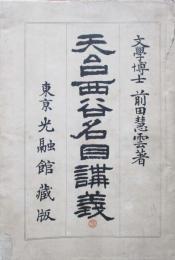 文學博士 前田慧雲著
天台西谷名目講義
東京 光融館藏版